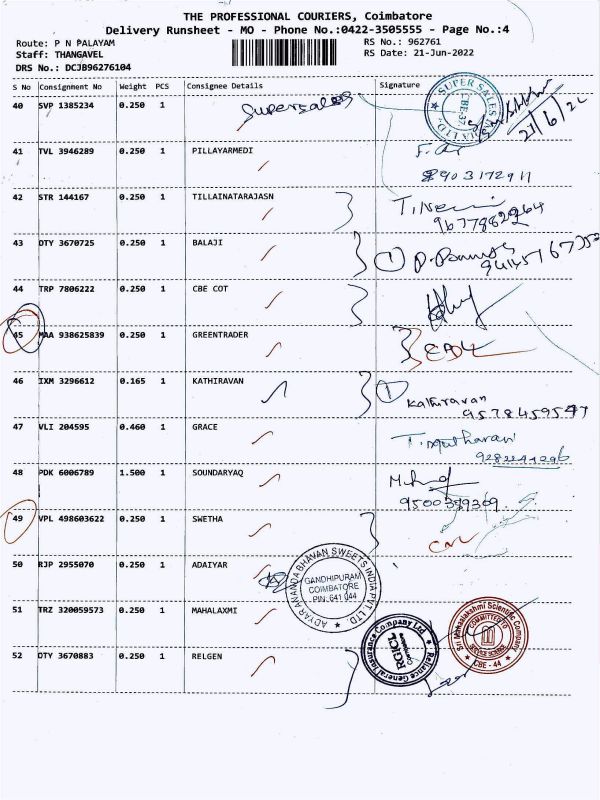 THE PROFESSIONAL COURIERS, Coimbatore
Delivery Runsheet - MO - Phone No.:0422-3505555 - Page No.:4
Route: P N PALAYAM RS No.: 962761
Staff: THANGAVEL RS Date: 21-Jun-2022
DRS No.: DCJB96276104
S No Consignment No Weight PCS Consignee Details Signature
40 SVP 1385234 0.250 1 Supersales
SUPER SALES LTD. CBE-37
21/6/22
41 TVL 3946289 0.250 1 PILLAYARMEDI
8903172911
42 STR 144167 0.250 1 TILLAINATARAJASN
9677882964
43 OTY 3670725 0.250 1 BALAJI
1
44 TRP 7806222 0.250 1 CBE COT
45 MAA 938625839 0.250 1 GREENTRADER
46 IXM 3296612 0.165 1 KATHIRAVAN
1
Kathiravan
9578459547
47 VLI 204595 0.460 1 GRACE
9282244296
48 PDK 6006789 1.500 1 SOUNDARYAQ
9500399369
49 VPL 498603622 0.250 1 SWETHA
50 RJP 2955070 0.250 1 ADAIYAR
ADYAR ANANDA BHAVAN SWEETS INDIA PVT. LTD.
GANDHIPURAM
COIMBATORE
PIN: 641 044
51 TRZ 320059573 0.250 1 MAHALAXMI
Sri Mahalakshmi Scientific Company
COMMITTED TO
SERVICE SCIENCE
CBE - 44
52 OTY 3670883 0.250 1 RELGEN
Reliance General Insurance Company Ltd
RGICL
Coimbatore